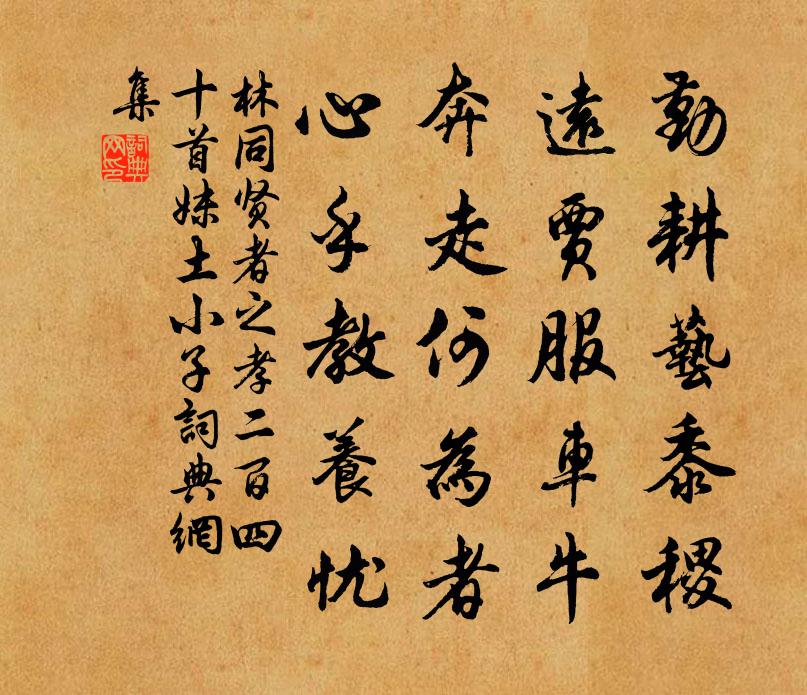 勤耕藝黍稷
遠賈服車牛
奔走何為者
心乎教養忧
林同贤者之孝二百四
十首妹土小子詞典網
集
詞典
网印